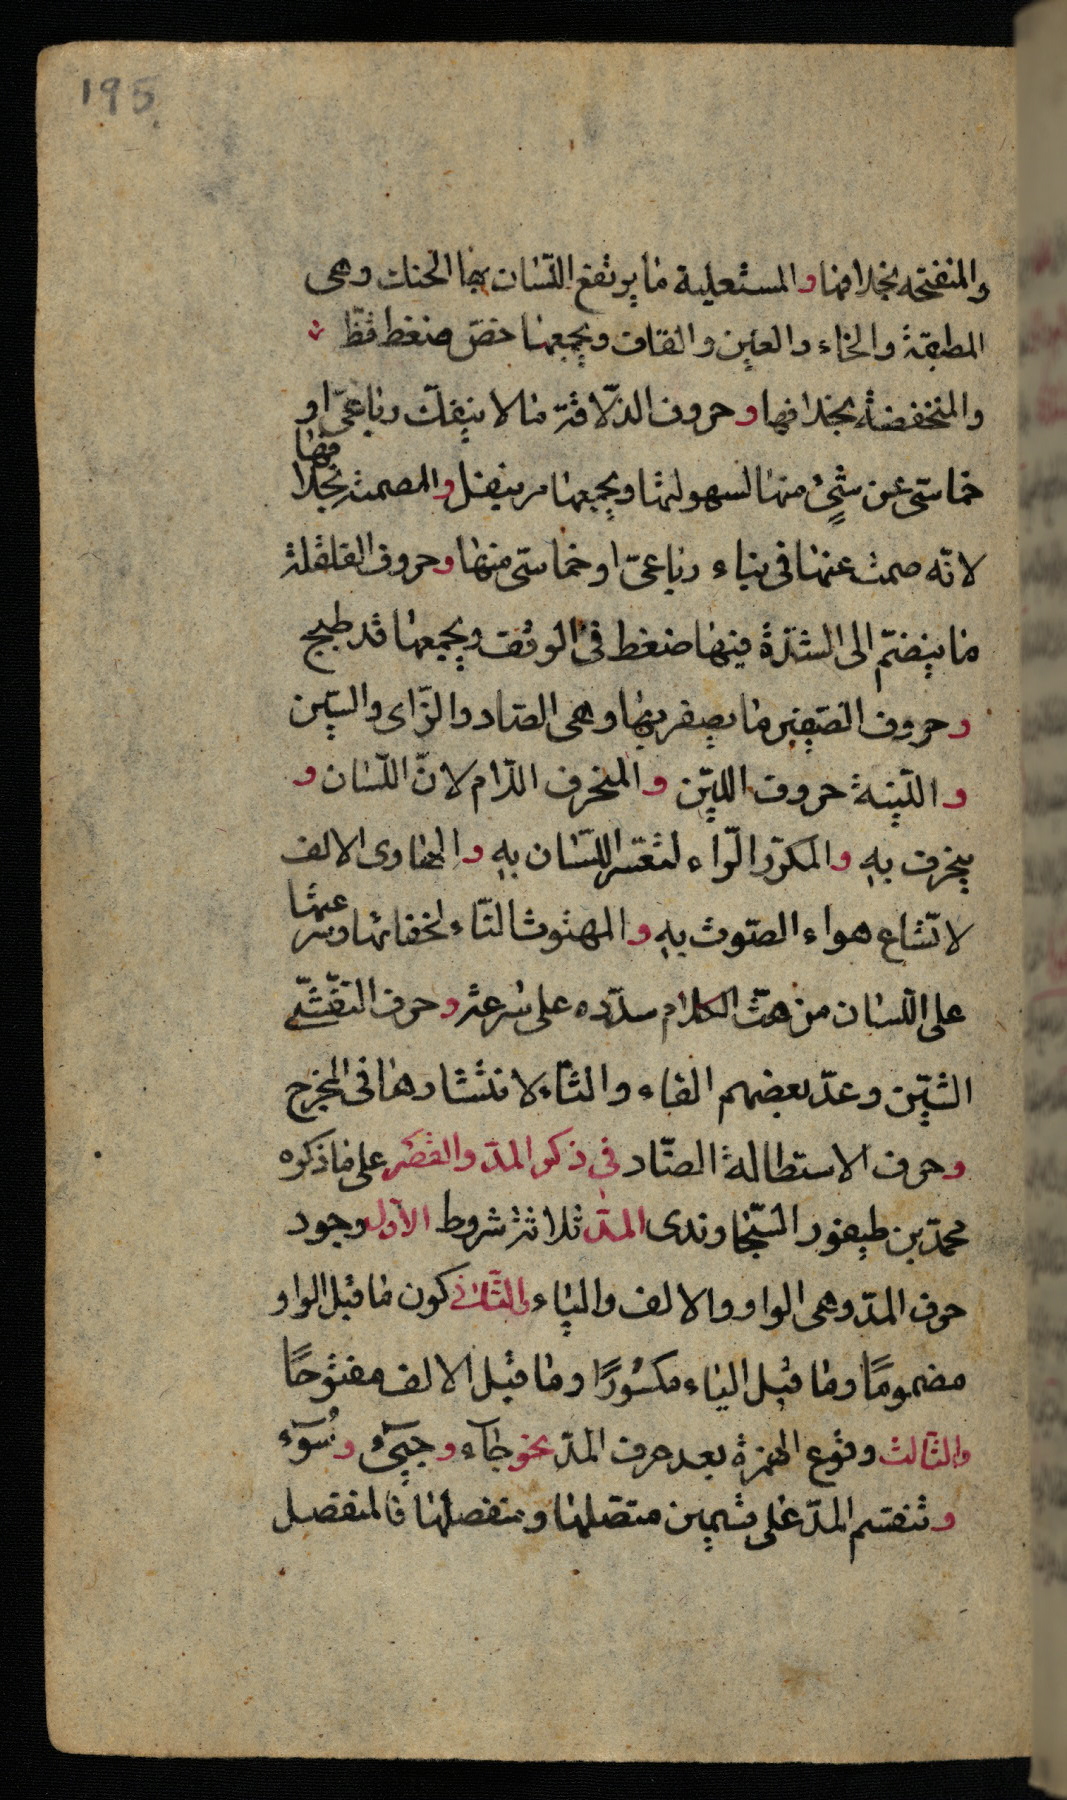 195
والمنفتحة بخلافها والمستعلية ما يرتفع اللسان بها الحنك وهى
المطبقة والخاء والغين والقاف ويجمعها خصّ ضغط قظ
والمنخفضة بخلافها وحروف الذلّاقة ما لا ينفكّ رباعىّ او
خماسى عن شىٍٔ منها لسهولتها ويجمعها مر بنفل والمصمتة بخلافها
لانّه صمت عنها فى بناء رباعىّ او خماسى منها وحروف القلقلة
ما ينضمّ الى الشدّة فيها ضغط فى الوقف ويجمعها قد طبج
وحروف الصّفير ما يصفر بها وهى الصاد والزّاى والسّين
و اللّينة حروف اللّين والمنحرف اللّام لانّ اللّسان و
ينحرف به والمكرّر الرّاء لتعثّر اللّسان به والهاوى الالف
لاتّساع هواء الصّوت به والمهتوت التّاء لخفائها وسرعتها
على اللّسان من هتّ الكلام سدّده على سرعة وحرف التفشّى
الشّين وعدّ بعضهم الفاء والثّاء لانتشارهما فى المخرج
وحرف الاستطالة الضّاد فى ذكر المدّ والقصر على ما ذكره
محمّد بن طيفور السّجاوندى المدّ ثلاثة شروط الاوّل وجود
حرف المدّ وهى الواو والالف والياء والثّانى كون ما قبل الواو
مضمومًا وما قبل الياء مكسُورًا وما قبل الالف مفتوحًا
والثّالث وقوع الهمزة بعد حرف المدّ نحو جآء وجىٓء وسُوٓء
وتنقسم المدّ على قسمين متّصلها ومنفصلها فالمنفصل